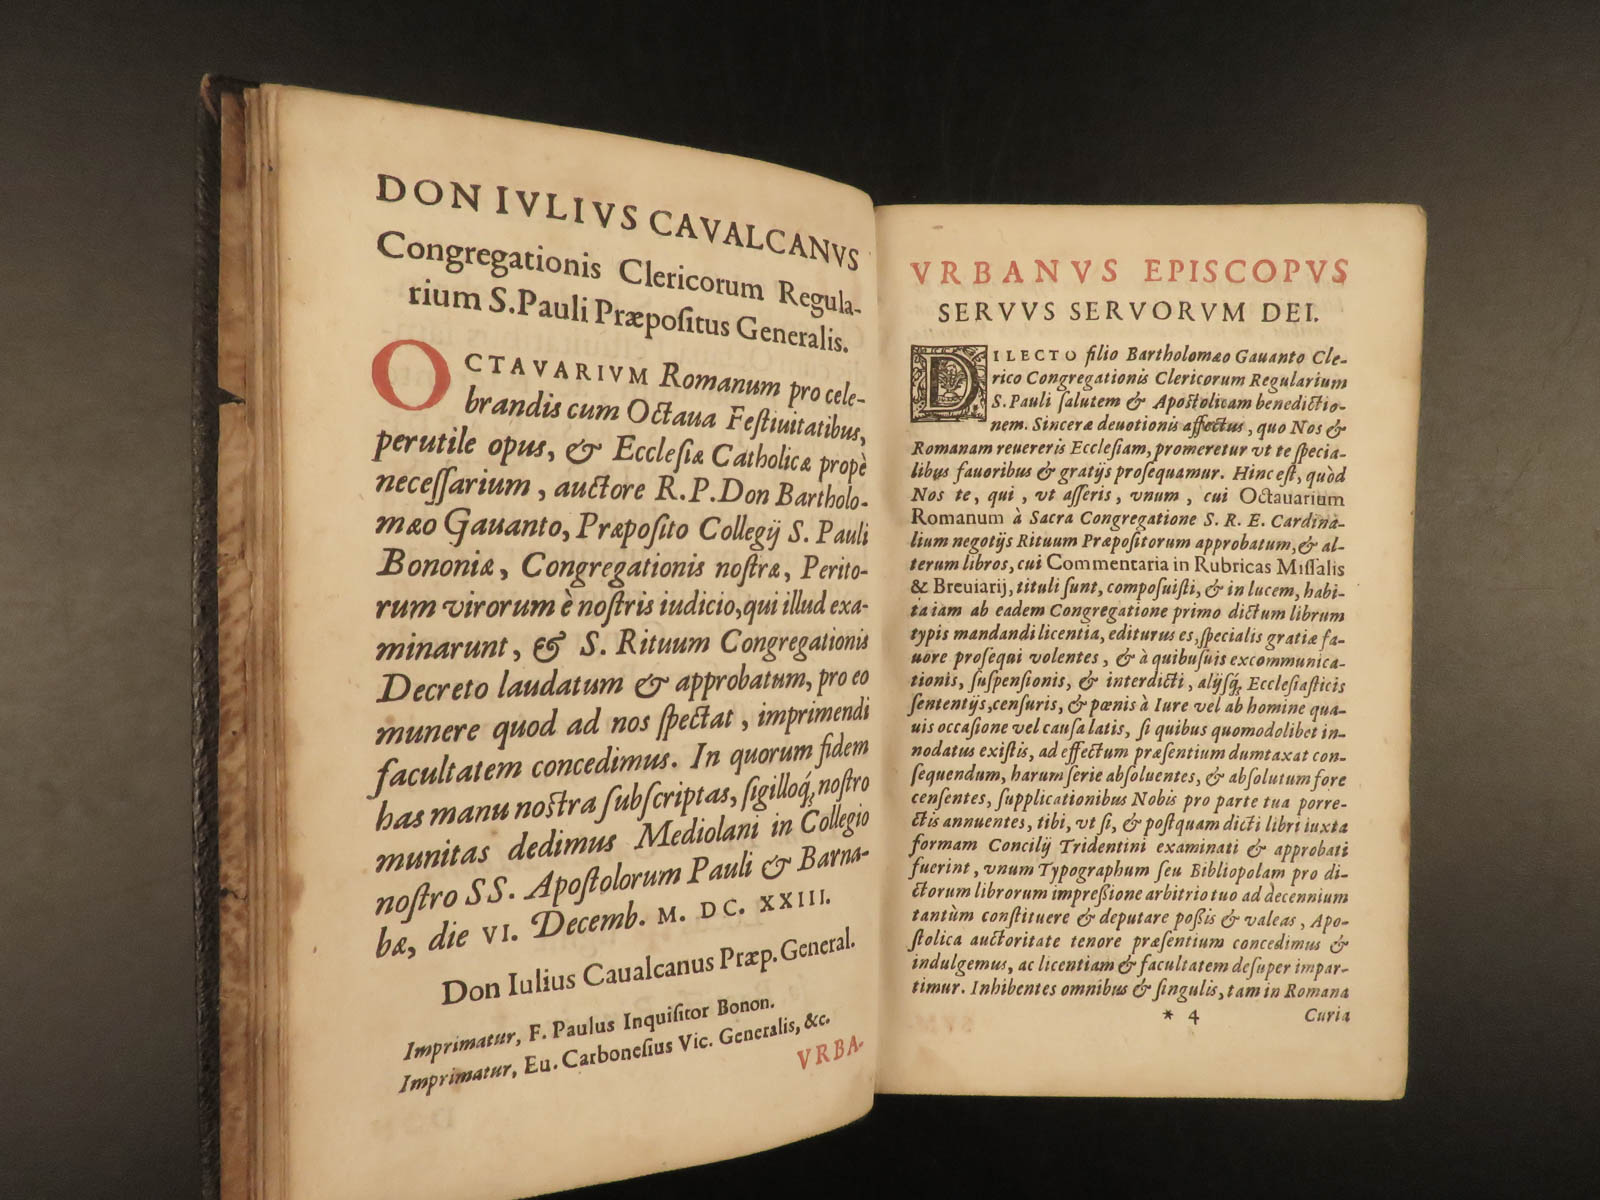 DON IVLIVS CAVALCANVS
Congregationis Clericorum Regula-
rium S. Pauli Præpoſitus Generalis.
OCTAVARIVM Romanum pro cele-
brandis cum Octaua Feſtiuitatibus,
perutile opus, & Eccleſiæ Catholicæ propè
neceſſarium, auctore R. P. Don Bartholo-
mæo Gauanto, Præpoſito Collegij S. Pauli
Bononiæ, Congregationis noſtræ, Perito-
rum virorum è noſtris iudicio, qui illud exa-
minarunt, & S. Rituum Congregationis
Decreto laudatum & approbatum, pro eo
munere quod ad nos ſpectat, imprimendi
facultatem concedimus. In quorum fidem
has manu noſtra ſubſcriptas, ſigilloq́; noſtro
munitas dedimus Mediolani in Collegio
noſtro SS. Apoſtolorum Pauli & Barna-
bæ, die VI. Decemb. M. DC. XXIII.
Don Iulius Caualcanus Præp. General.
Imprimatur, F. Paulus Inquiſitor Bonon.
Imprimatur, Eu. Carboneſius Vic. Generalis, &c.
VRBA-
VRBANVS EPISCOPVS
SERVVS SERVORVM DEI.
DILECTO filio Bartholomæo Gauanto Cle-
rico Congregationis Clericorum Regularium
S. Pauli ſalutem & Apoſtolicam benedictio-
nem. Sinceræ deuotionis affectus, quo Nos &
Romanam reuereris Eccleſiam, promeretur vt te ſpecia-
libus fauoribus & gratijs proſequamur. Hinc eſt, quòd
Nos te, qui, vt aſſeris, vnum, cui Octauarium
Romanum à Sacra Congregatione S. R. E. Cardina-
lium negotijs Rituum Præpoſitorum approbatum, & al-
terum libros, cui Commentaria in Rubricas Miſſalis
& Breuiarij, tituli ſunt, compoſuiſti, & in lucem, habi-
ta iam ab eadem Congregatione primo dictum librum
typis mandandi licentia, editurus es, ſpecialis gratiæ fa-
uore proſequi volentes, & à quibuſuis excommunica-
tionis, ſuſpenſionis, & interdicti, alijſq́; Eccleſiaſticis
ſententijs, cenſuris, & pœnis à Iure vel ab homine qua-
uis occaſione vel cauſa latis, ſi quibus quomodolibet in-
nodatus exiſtis, ad effectum præſentium dumtaxat con-
ſequendum, harum ſerie abſoluentes, & abſolutum fore
cenſentes, ſupplicationibus Nobis pro parte tua porre-
ctis annuentes, tibi, vt ſi, & poſtquam dicti libri iuxta
formam Concilij Tridentini examinati & approbati
fuerint, vnum Typographum ſeu Bibliopolam pro di-
ctorum librorum impreßione arbitrio tuo ad decennium
tantùm conſtituere & deputare poßis & valeas, Apo-
ſtolica auctoritate tenore præſentium concedimus &
indulgemus, ac licentiam & facultatem deſuper impar-
timur. Inhibentes omnibus & ſingulis, tam in Romana
* 4 Curia